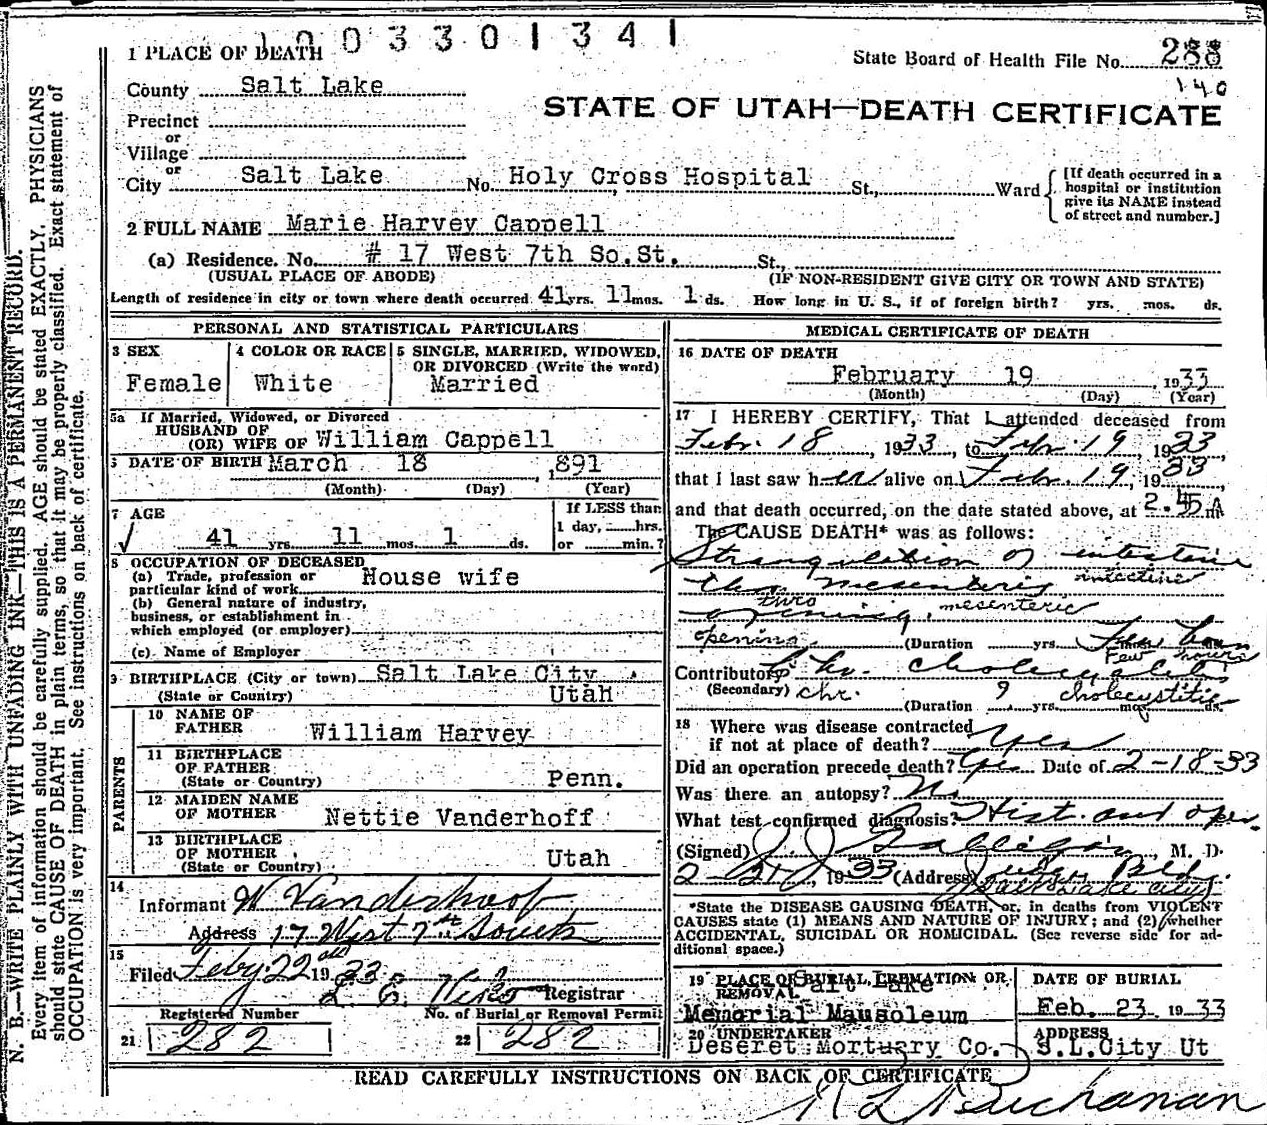 1003301341
1 PLACE OF DEATH
State Board of Health File No. 288
140
County Salt Lake
STATE OF UTAH—DEATH CERTIFICATE
Precinct
or
Village
or
City Salt Lake No. Holy Cross Hospital St., Ward
[If death occurred in a
hospital or institution
give its NAME instead
of street and number.]
2 FULL NAME Marie Harvey Cappell
(a) Residence. No. # 17 West 7th So.St. St.,
(USUAL PLACE OF ABODE) (IF NON-RESIDENT GIVE CITY OR TOWN AND STATE)
Length of residence in city or town where death occurred 41 yrs. 11 mos. 1 ds. How long in U. S., if of foreign birth? yrs. mos. ds.
PERSONAL AND STATISTICAL PARTICULARS
3 SEX
Female
4 COLOR OR RACE
White
5 SINGLE, MARRIED, WIDOWED,
OR DIVORCED (Write the word)
Married
5a If Married, Widowed, or Divorced
HUSBAND OF
(OR) WIFE OF William Cappell
6 DATE OF BIRTH March 18 , 891
(Month) (Day) (Year)
7 AGE
41 yrs. 11 mos. 1 ds.
If LESS than
1 day, hrs.
or min.?
8 OCCUPATION OF DECEASED
(a) Trade, profession or
particular kind of work House wife
(b) General nature of industry,
business, or establishment in
which employed (or employer)
(c) Name of Employer
9 BIRTHPLACE (City or town) Salt Lake City,
(State or Country) Utah
PARENTS
10 NAME OF
FATHER William Harvey
11 BIRTHPLACE
OF FATHER
(State or Country) Penn.
12 MAIDEN NAME
OF MOTHER Nettie Vanderhoff
13 BIRTHPLACE
OF MOTHER
(State or Country) Utah
14
Informant W Vanderhoof
Address 17 West 7th South
15
Filed Feby 22 1933
Registrar
Registered Number
21 282
No. of Burial or Removal Permit
22 282
MEDICAL CERTIFICATE OF DEATH
16 DATE OF DEATH
February 19 , 1933
(Month) (Day) (Year)
17 I HEREBY CERTIFY, That I attended deceased from
Febr. 18, 1933, to Febr. 19, 1933
that I last saw her alive on Febr. 19, 1933,
and that death occurred, on the date stated above, at 2.45 A m
The CAUSE DEATH* was as follows:
Strangulation of intestine
thro mesenteric intestine
thro
opening, mesenteric
opening (Duration yrs. Few hours
Few hours
Contributory Chr. cholecystitis
(Secondary) chr. ? cholecystitis
(Duration yrs. mos. ds.
18 Where was disease contracted
if not at place of death? yes
Did an operation precede death? Yes Date of 2-18-33
Was there an autopsy? No
What test confirmed diagnosis? Hist. and oper.
(Signed) J. J. Galligan, M. D.
2-21, 1933 (Address) Judge Bldg.
Salt Lake City
*State the DISEASE CAUSING DEATH, or, in deaths from VIOLENT
CAUSES state (1) MEANS AND NATURE OF INJURY; and (2) whether
ACCIDENTAL, SUICIDAL OR HOMICIDAL. (See reverse side for ad-
ditional space.)
19 PLACE OF BURIAL, CREMATION OR
REMOVAL Salt Lake
Memorial Mausoleum
DATE OF BURIAL
Feb. 23 1933
20 UNDERTAKER
Deseret Mortuary Co.
ADDRESS
S.L.City Ut
READ CAREFULLY INSTRUCTIONS ON BACK OF CERTIFICATE
Buchanan
N. B.—WRITE PLAINLY WITH UNFADING INK—THIS IS A PERMANENT RECORD.
Every item of information should be carefully supplied. AGE should be stated EXACTLY. PHYSICIANS
should state CAUSE OF DEATH in plain terms, so that it may be properly classified. Exact statement of
OCCUPATION is very important. See instructions on back of certificate.